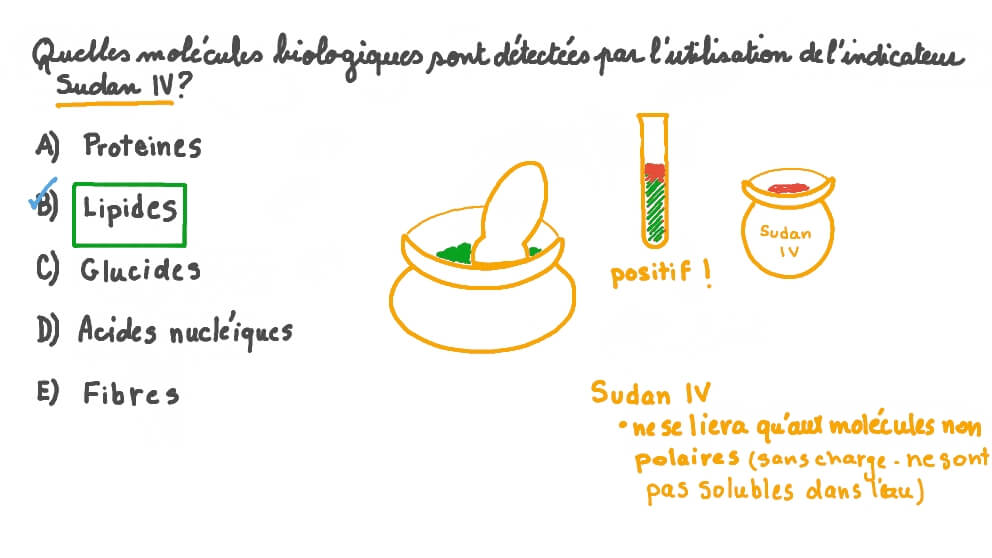 Quelles molécules biologiques sont détectées par l'utilisation de l'indicateur
Sudan IV?
A) Proteines
B) Lipides
C) Glucides
D) Acides nucléiques
E) Fibres
positif !
Sudan
IV
Sudan IV
• ne se liera qu'aux molécules non
polaires (sans charge - ne sont
pas solubles dans l'eau)